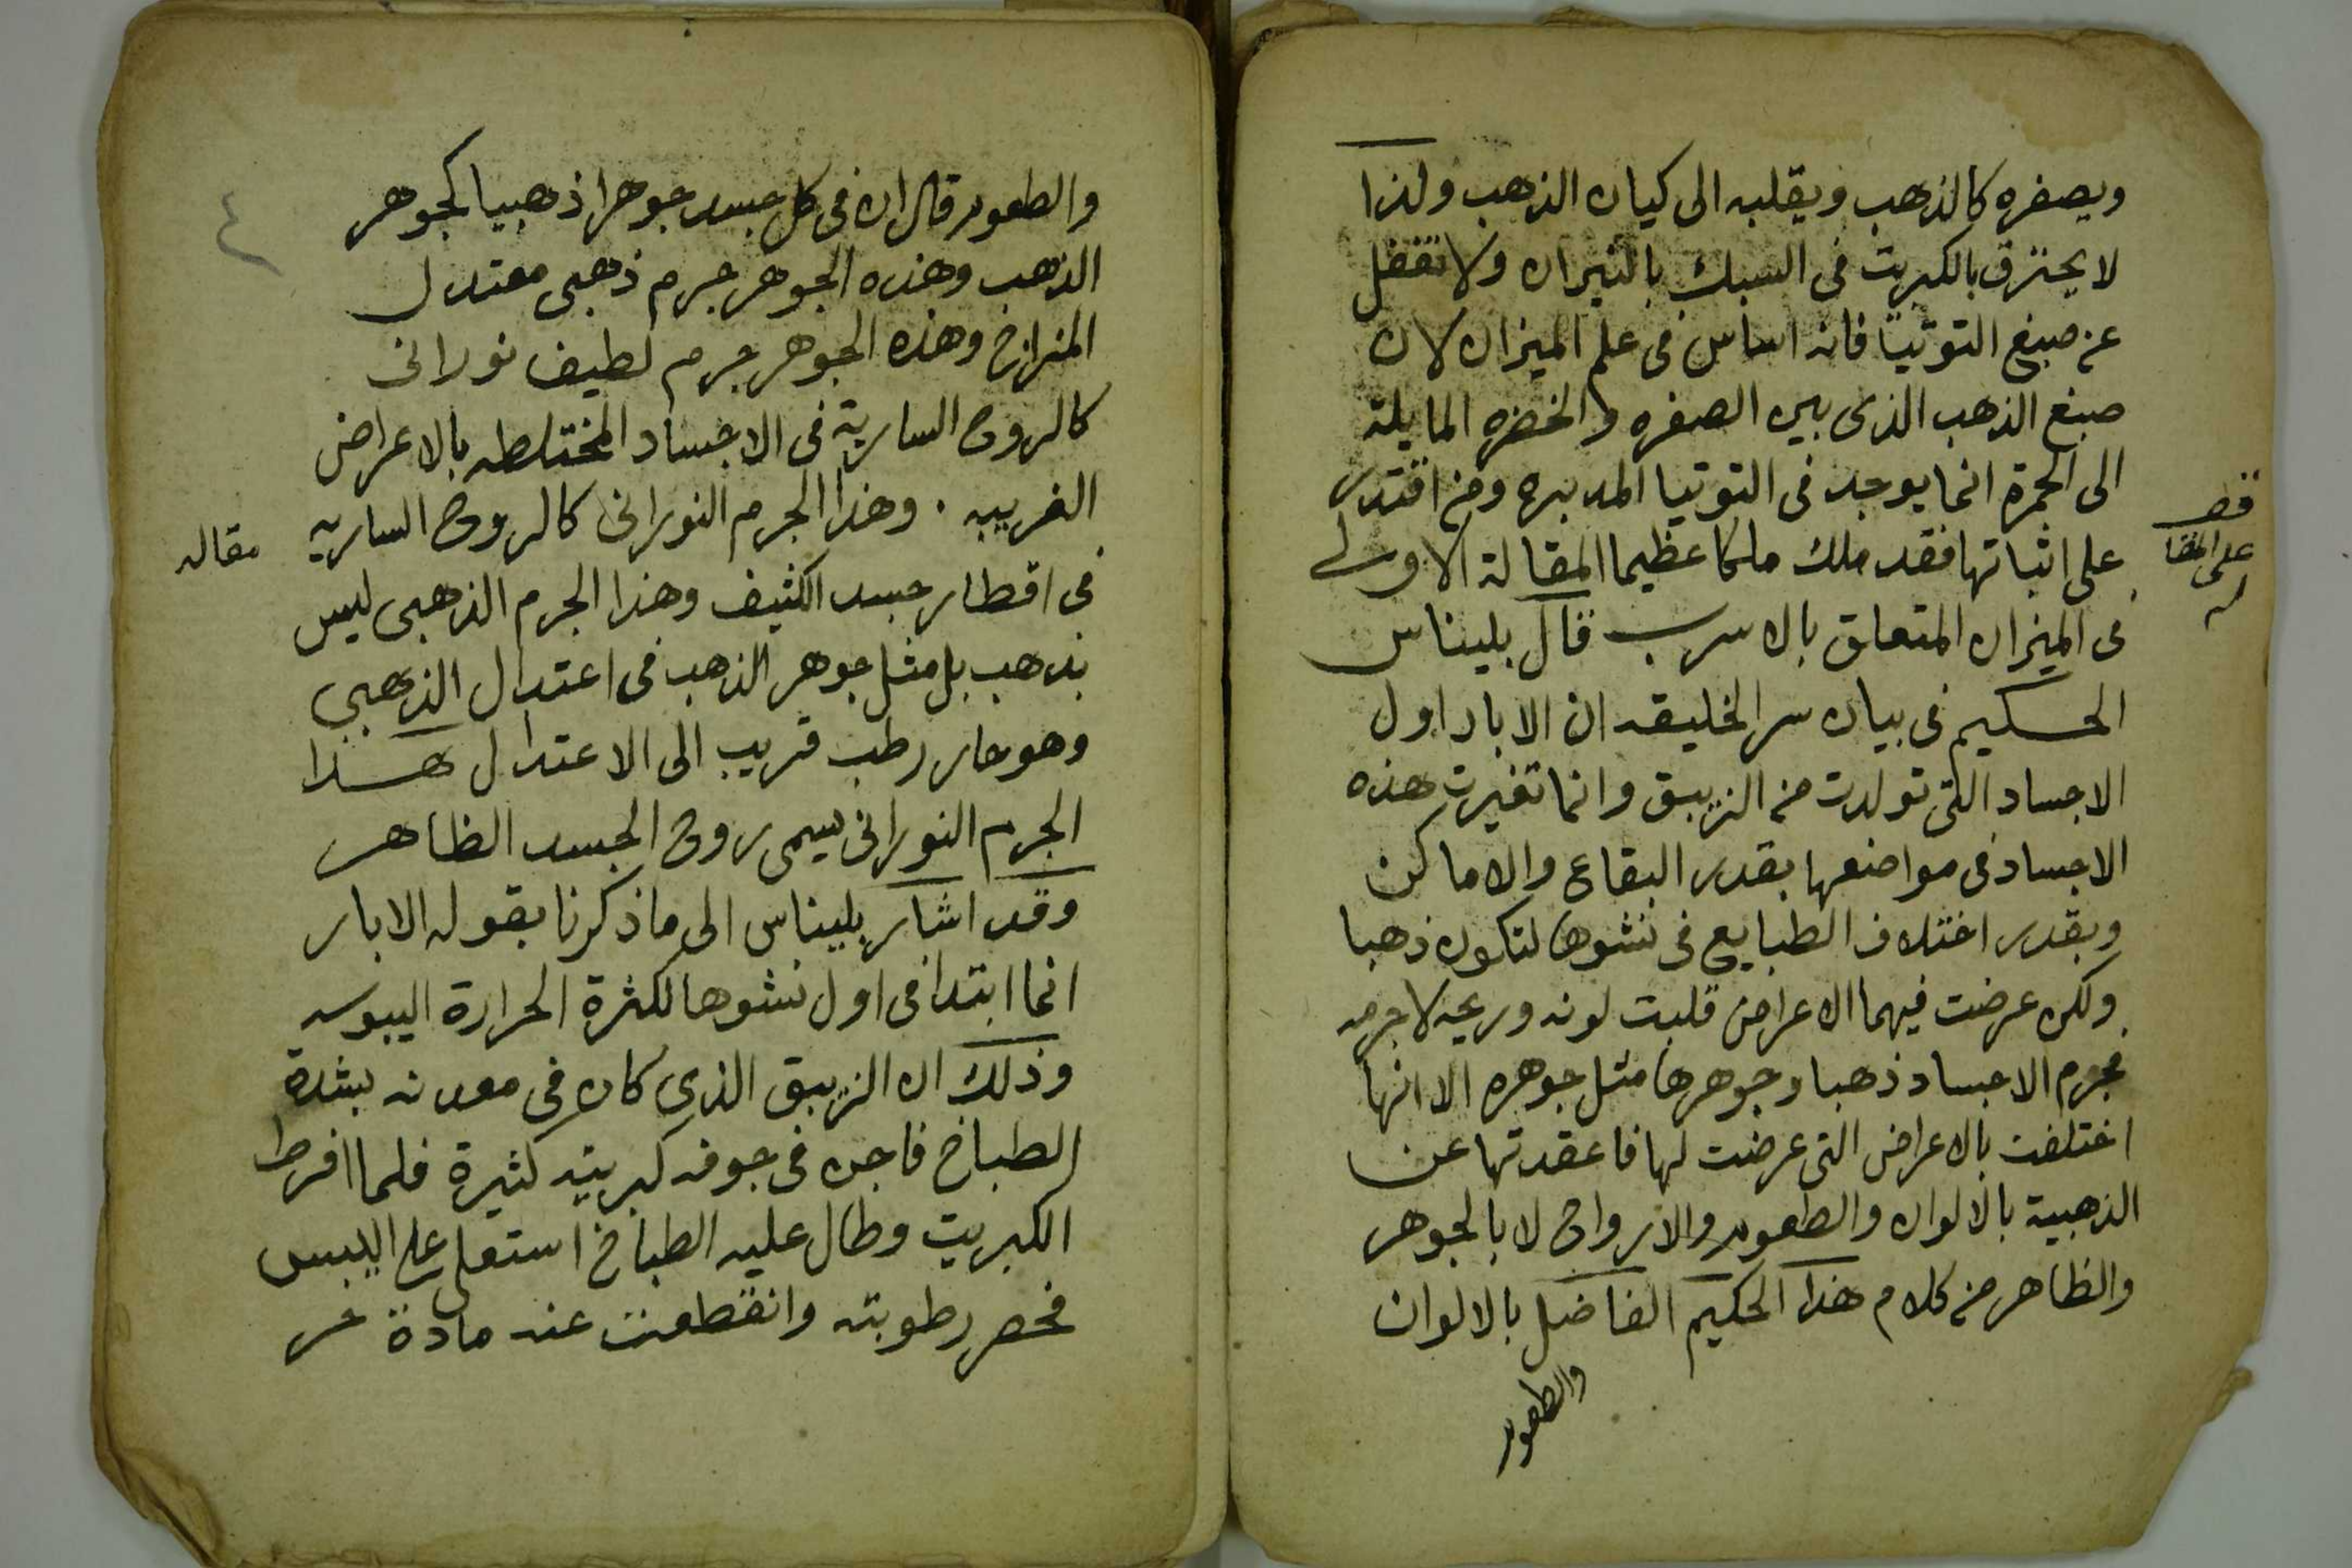 ويصفره كالذهب ويقلبه الى كيان الذهب ولذا
لا يحترق بالكبريت فى السبك بالنيران ولا تغفل
عن صبغ التوتيا فانه اساس فى علم الميزان لان
صبغ الذهب الذى بين الصفره والخضره المايلة
الى الحمرة انما يوجد فى التوتيا المدبره ومن اقتدر
على اثباتها فقد ملك ملكا عظيما المقالة الاولى
فى الميزان المتعلق بالاسرب قال بليناس
الحكيم فى بيان سر الخليقه ان الابار اول
الاجساد التى تولدت من الزيبق وانما تغيرت هذه
الاجساد فى مواضعها بقدر البقاع والاماكن
وبقدر اختلاف الطبايع فى نشوها لتكون ذهبا
ولكن عرضت فيهما الاعراض قلبت لونه وريحه لا جرمه
فجرم الاجساد ذهبا وجوهرها مثل جوهره الا انها
اختلفت بالاعراض التى عرضت لها فاعقدتها عن
الذهبية بالالوان والطعوم والارواح لا بالجوهر
والظاهر من كلام هذا الحكيم الفاضل بالالوان
والطعوم
على المقا
له
٤
والطعوم قال ان فى كل جسد جوهرا ذهبيا كجوهر
الذهب وهذه الجوهر جرم ذهبى معتدل
المزاج وهذه الجوهر جرم لطيف نورانى
كالروح السارية فى الاجساد المختلطه بالاعراض
الغريبه . وهذا الجرم النورانى كالروح الساريه
مقاله
فى اقطار جسد الكثيف وهذا الجرم الذهبى ليس
بذهب بل مثل جوهر الذهب فى اعتدال الذهبى
وهو حار رطب قريب الى الاعتدال هذا
الجرم النورانى يسمى روح الجسد الظاهر
وقد اشار بليناس الى ما ذكرنا بقوله الابار
انما ابتدا فى اول نشوها لكثرة الحرارة اليبوسه
وذلك ان الزيبق الذى كان فى معدنه بشدة
الطباخ فاجن فى جوفه كبريتيه كثيرة فلما افرط
الكبريت وطال عليه الطباخ استعلى على اليبس
فحصر رطوبته وانقطعت عنه مادة